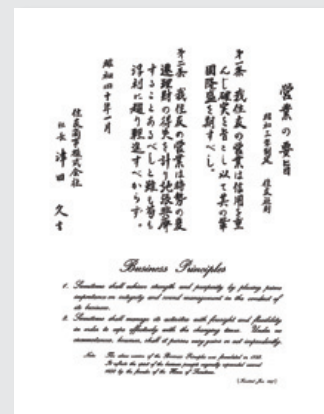 營業の要旨
昭和三年制定　住友社則
第一条　我住友の營業は信用を重
んじ確実を旨とし以て其の鞏
固隆盛を期すべし。
第二条　我住友の營業は時勢の変
遷理財の得失を計り弛張興廃
することあるべしと雖も苟も
浮利に趨り軽進すべからず。
昭和四十年一月
住友商事株式会社
社長　津田　久
Business Principles
1. Sumitomo shall achieve strength and prosperity by placing prime
importance on integrity and sound management in the conduct of
its business.
2. Sumitomo shall manage its activities with foresight and flexibility
in order to cope effectively with the changing times. Under no
circumstances, however, shall it pursue easy gains or act imprudently.